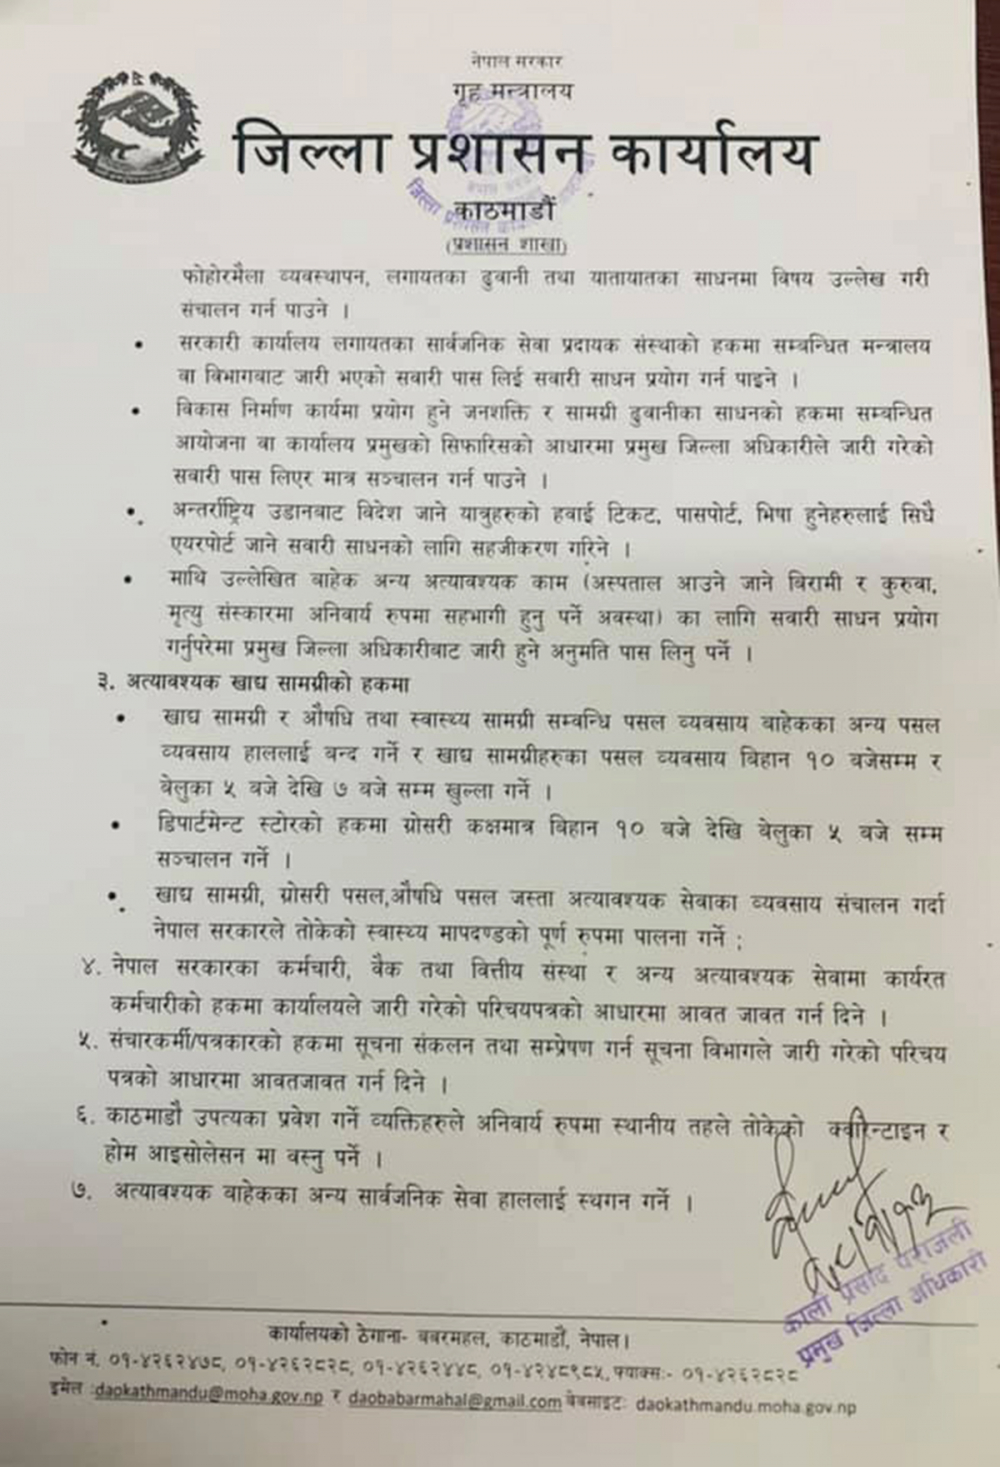 नेपाल सरकार
गृह मन्त्रालय
जिल्ला प्रशासन कार्यालय
काठमाडौं
(प्रशासन शाखा)
फोहोरमैला व्यवस्थापन, लगायतका ढुवानी तथा यातायातका साधनमा विषय उल्लेख गरी
संचालन गर्न पाउने ।
• सरकारी कार्यालय लगायतका सार्वजनिक सेवा प्रदायक संस्थाको हकमा सम्बन्धित मन्त्रालय
वा विभागबाट जारी भएको सवारी पास लिई सवारी साधन प्रयोग गर्न पाइने ।
• विकास निर्माण कार्यमा प्रयोग हुने जनशक्ति र सामग्री ढुवानीका साधनको हकमा सम्बन्धित
आयोजना वा कार्यालय प्रमुखको सिफारिसको आधारमा प्रमुख जिल्ला अधिकारीले जारी गरेको
सवारी पास लिएर मात्र सञ्चालन गर्न पाउने ।
• अन्तर्राष्ट्रिय उडानबाट विदेश जाने यात्रुहरुको हवाई टिकट, पासपोर्ट, भिषा हुनेहरुलाई सिधै
एयरपोर्ट जाने सवारी साधनको लागि सहजीकरण गरिने ।
• माथि उल्लेखित बाहेक अन्य अत्यावश्यक काम (अस्पताल आउने जाने बिरामी र कुरुवा,
मृत्यु संस्कारमा अनिवार्य रुपमा सहभागी हुनु पर्ने अवस्था) का लागि सवारी साधन प्रयोग
गर्नुपरेमा प्रमुख जिल्ला अधिकारीबाट जारी हुने अनुमति पास लिनु पर्ने ।
३. अत्यावश्यक खाद्य सामग्रीको हकमा
• खाद्य सामग्री र औषधि तथा स्वास्थ्य सामग्री सम्बन्धि पसल व्यवसाय बाहेकका अन्य पसल
व्यवसाय हाललाई बन्द गर्ने र खाद्य सामग्रीहरुका पसल व्यवसाय बिहान १० बजेसम्म र
बेलुका ५ बजे देखि ७ बजे सम्म खुल्ला गर्ने ।
• डिपार्टमेन्ट स्टोरको हकमा ग्रोसरी कक्षमात्र बिहान १० बजे देखि बेलुका ५ बजे सम्म
सञ्चालन गर्ने ।
• खाद्य सामग्री, ग्रोसरी पसल,औषधि पसल जस्ता अत्यावश्यक सेवाका व्यवसाय संचालन गर्दा
नेपाल सरकारले तोकेको स्वास्थ्य मापदण्डको पूर्ण रुपमा पालना गर्ने ;
४. नेपाल सरकारका कर्मचारी, बैंक तथा वित्तीय संस्था र अन्य अत्यावश्यक सेवामा कार्यरत
कर्मचारीको हकमा कार्यालयले जारी गरेको परिचयपत्रको आधारमा आवत जावत गर्न दिने ।
५. संचारकर्मी/पत्रकारको हकमा सूचना संकलन तथा सम्प्रेषण गर्न सूचना विभागले जारी गरेको परिचय
पत्रको आधारमा आवतजावत गर्न दिने ।
६. काठमाडौं उपत्यका प्रवेश गर्ने व्यक्तिहरुले अनिवार्य रुपमा स्थानीय तहले तोकेको क्वारेन्टाइन र
होम आइसोलेसन मा वस्नु पर्ने ।
७. अत्यावश्यक बाहेकका अन्य सार्वजनिक सेवा हाललाई स्थगन गर्ने ।
काली प्रसाद पराजली
प्रमुख जिल्ला अधिकारी
कार्यालयको ठेगाना- बबरमहल, काठमाडौं, नेपाल।
फोन नं. ०१-४२६२४७८, ०१-४२६२८२८, ०१-४२६२४४८, ०१-४२४८९८५, फ्याक्स:- ०१-४२६२८२८
इमेल :daokathmandu@moha.gov.np र daobabarmahal@gmail.com वेबसाइट: daokathmandu.moha.gov.np